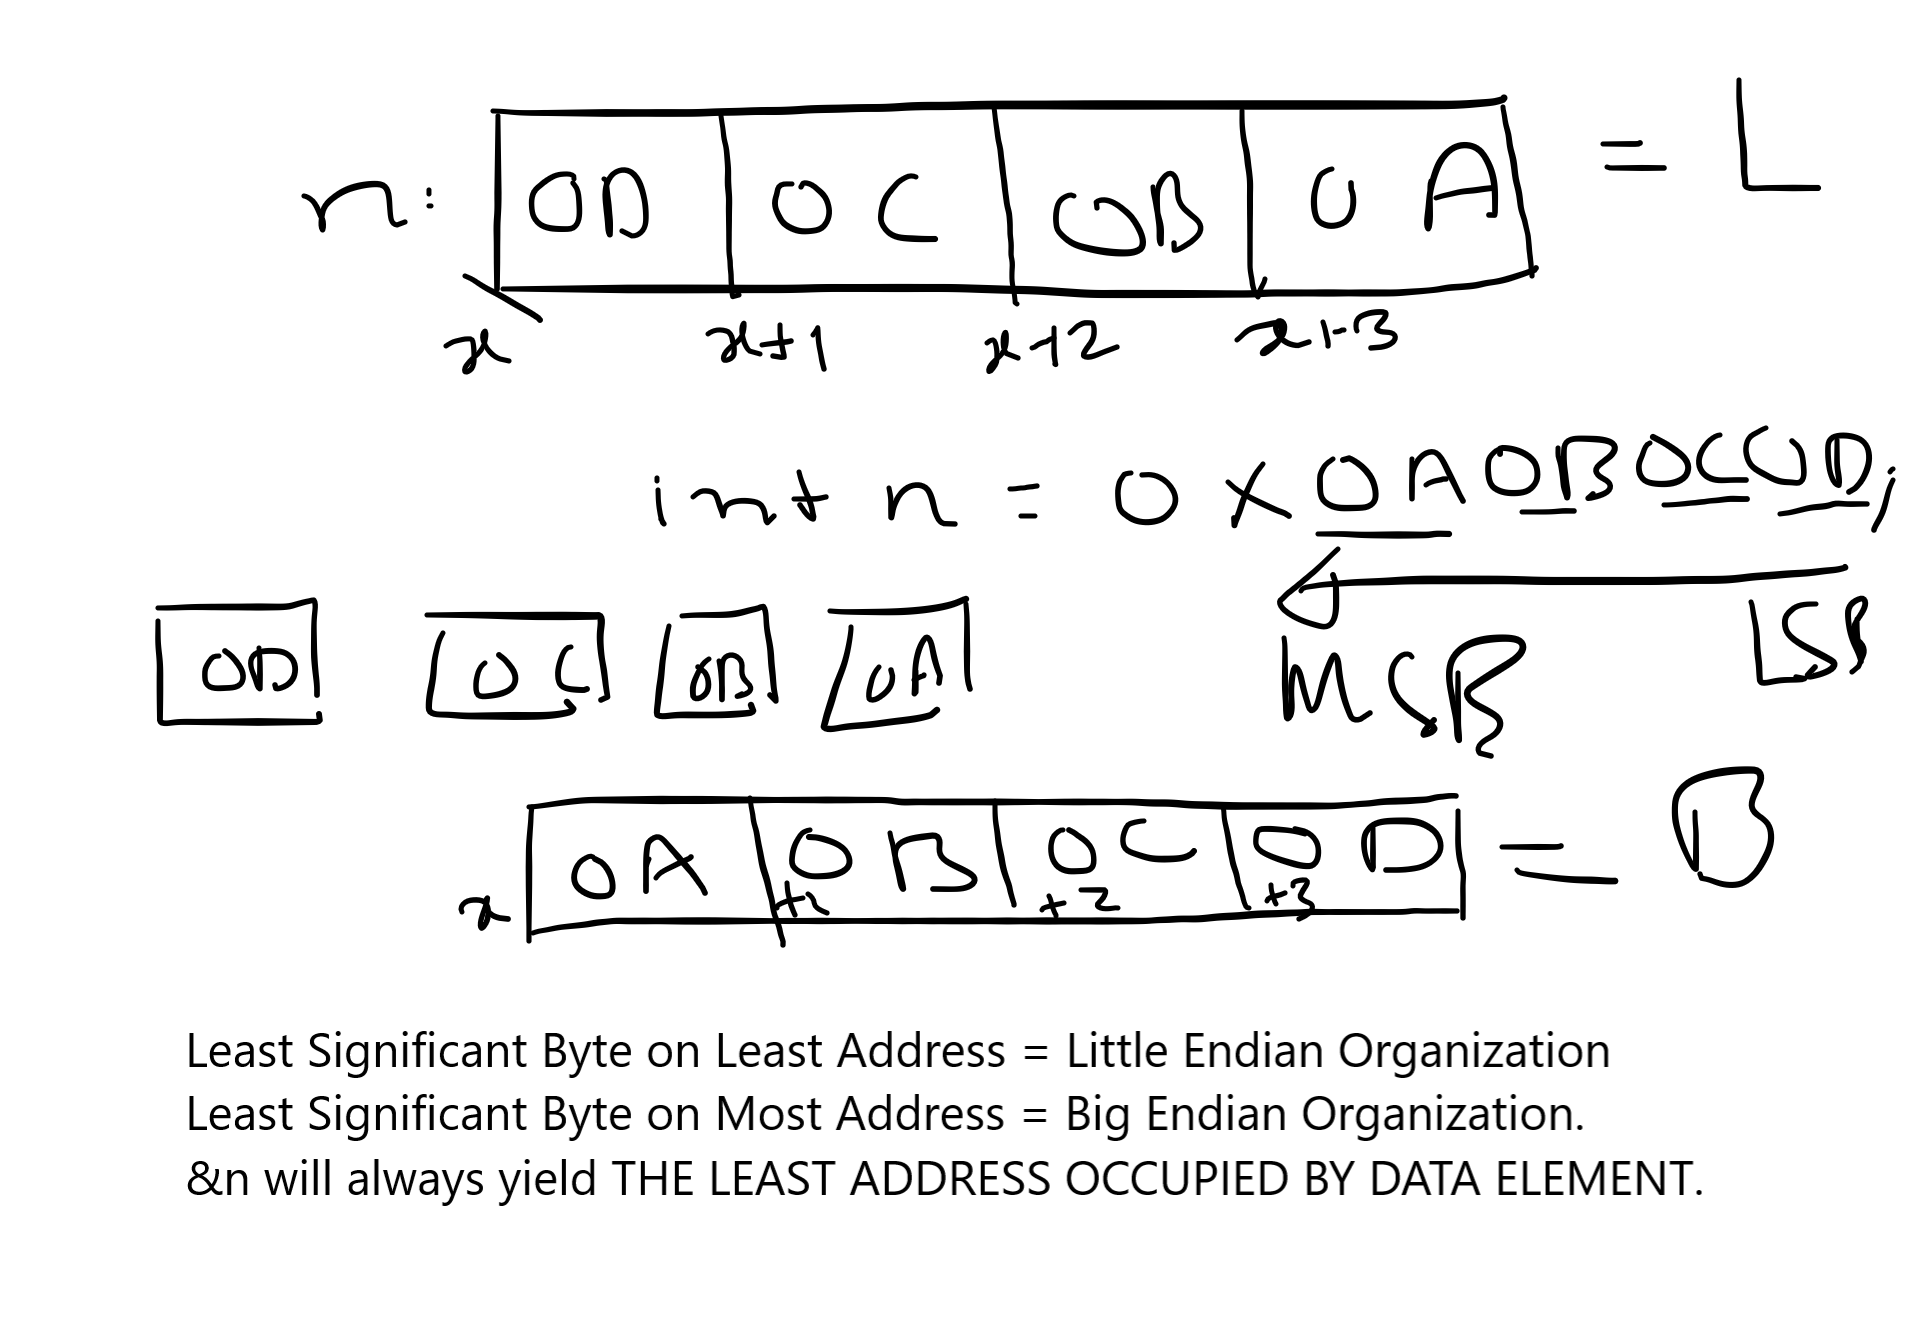 n: 0D 0C 0B 0A = L
x x+1 x+2 x+3
int n = 0x0A0B0C0D;
0D 0C 0B 0A
MSB LSB
0A 0B 0C 0D = B
x +1 +2 +3
Least Significant Byte on Least Address = Little Endian Organization
Least Significant Byte on Most Address = Big Endian Organization.
&n will always yield THE LEAST ADDRESS OCCUPIED BY DATA ELEMENT.